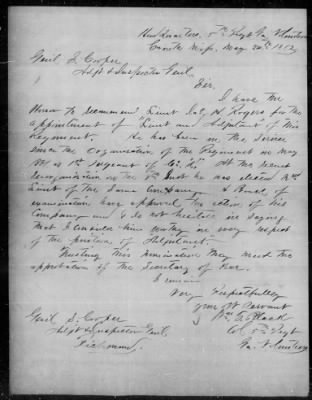 Head Quarters, 5th Regt Va Volunteers
Camp May 20th 1862
Genl S. Cooper
Adjt & Inspector Genl.
Sir.
I have the
Honor to recommend Lieut Jas. H. Rogers for the
appointment of Lieut and Adjutant of this
Regiment. He has been in the service
since the organization of the Regiment in May
1861 as 1st Sergeant of Co. At the recent
reorganization on the he was elected 2nd
Lieut of the same Company. A Board of
examination have approved the action of his
Company and I do not hesitate in saying
that I consider him worthy in every respect
of the position of Adjutant.
Trusting this nomination may meet the
approbation of the Secretary of War.
I remain
Very Respectfully
your obt Servant
Col 5th Regt
Va. Volunteers
Genl S. Cooper
Adjt & Inspector Genl.
Richmond